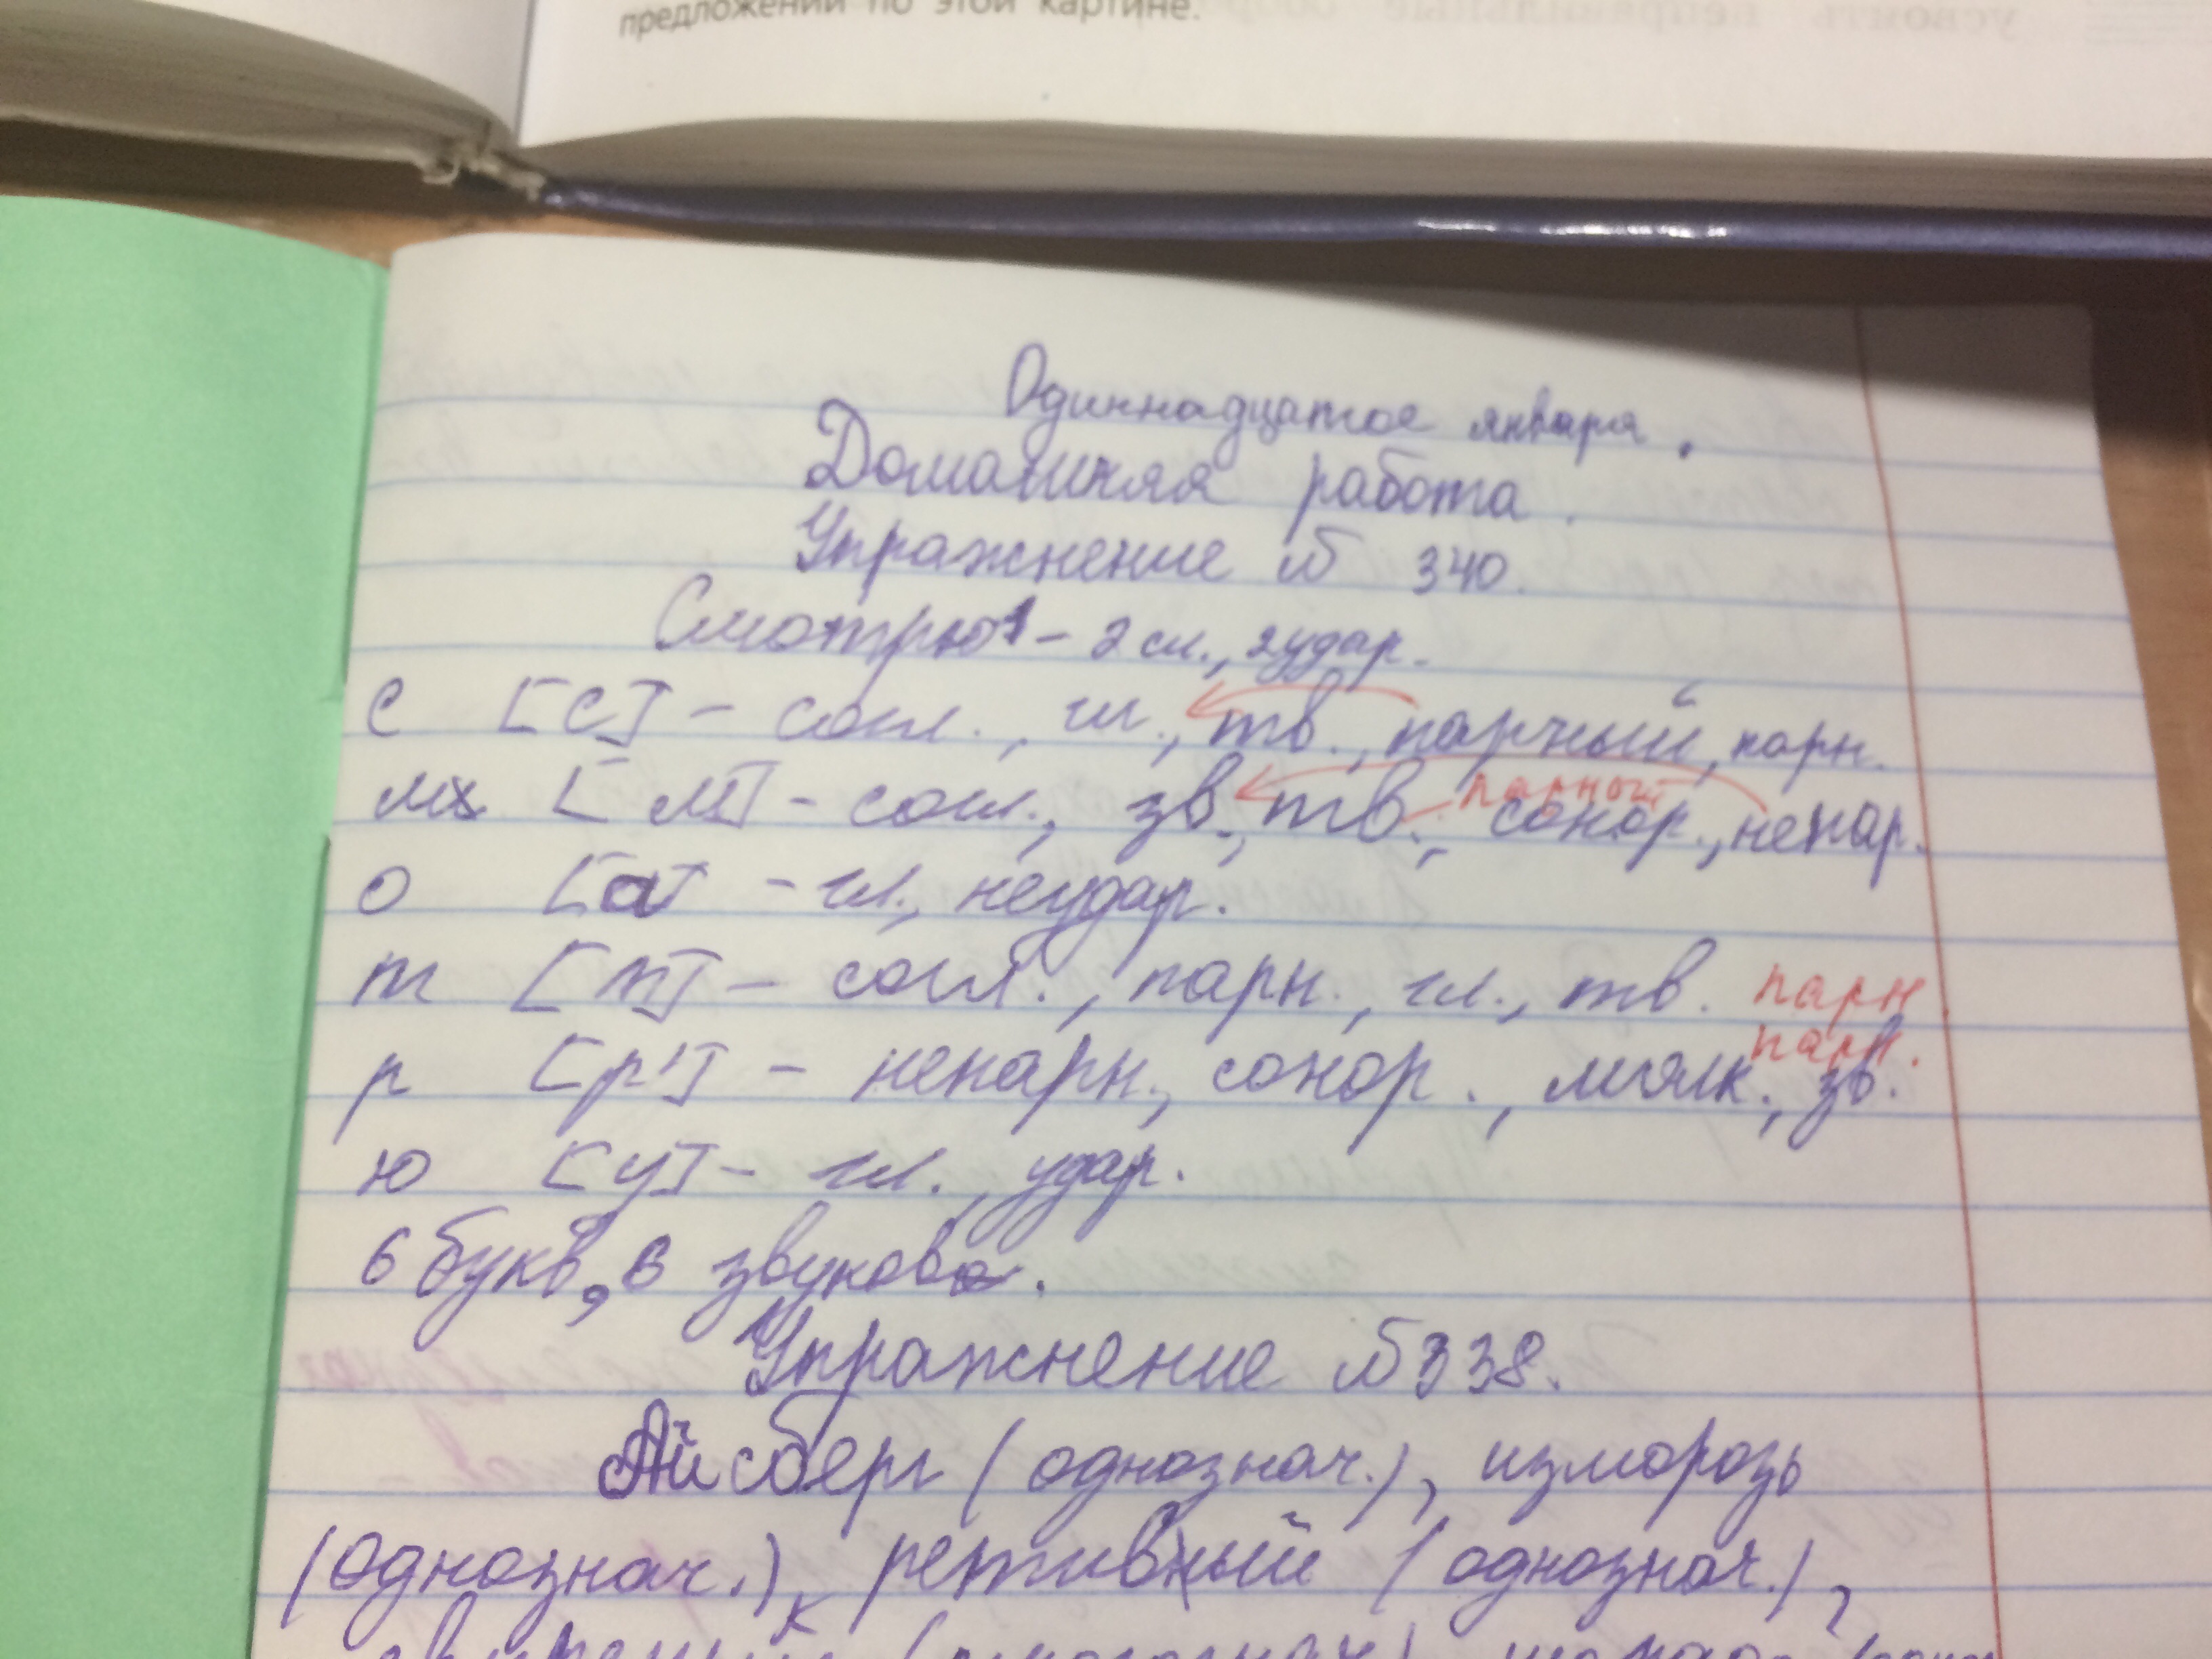 предложений по этой картине.
усвоить неправильные
Одиннадцатое января.
Домашняя работа.
Упражнение № 340.
Смотрю - 2 сл., 2 удар.
с [с] - согл., гл., тв., парный, парн.
м [м] - согл., зв., тв., парный сонор., непар.
о [а] - гл., неудар.
т [т] - согл., парн., гл., тв. парн
р [р'] - непарн., сонор., мягк. парн., зв.
ю [у] - гл., удар.
6 букв, 6 звуков.
Упражнение № 338.
Айсберг (однознач.), изморозь
(однознач.), ретивый (однознач.),